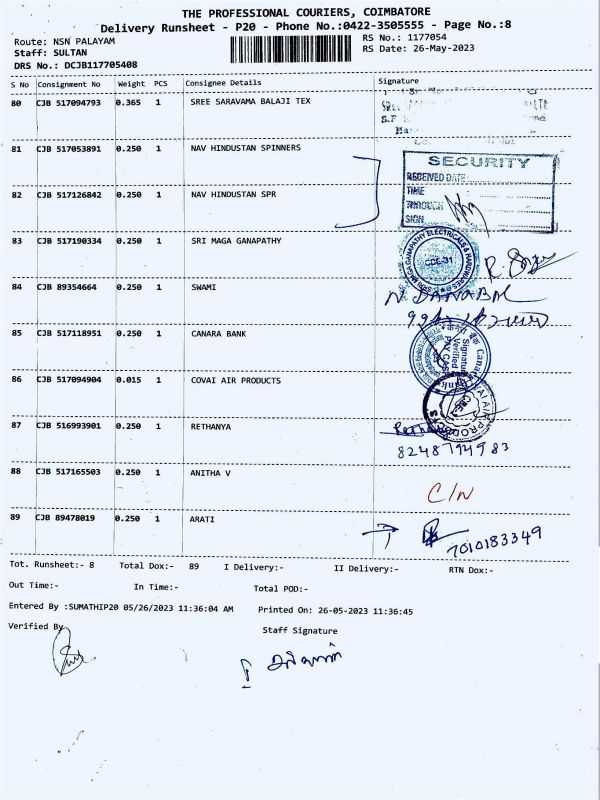 THE PROFESSIONAL COURIERS, COIMBATORE
Delivery Runsheet - P20 - Phone No.:0422-3505555 - Page No.:8
Route: NSN PALAYAM RS No.: 1177054
Staff: SULTAN RS Date: 26-May-2023
DRS No.: DCJB117705408
S No Consignment No Weight PCS Consignee Details Signature
80 CJB 517094793 0.365 1 SREE SARAVAMA BALAJI TEX
81 CJB 517053891 0.250 1 NAV HINDUSTAN SPINNERS
SECURITY
RECEIVED DATE:
82 CJB 517126842 0.250 1 NAV HINDUSTAN SPR TIME
THROUGH
SIGN
83 CJB 517190334 0.250 1 SRI MAGA GANAPATHY
SRI MAGA GANAPATHY ELECTRICALS & HARDWARES
CBE-31
84 CJB 89354664 0.250 1 SWAMI
85 CJB 517118951 0.250 1 CANARA BANK
Signature Verified
86 CJB 517094904 0.015 1 COVAI AIR PRODUCTS
87 CJB 516993901 0.250 1 RETHANYA
88 CJB 517165503 0.250 1 ANITHA V
C/N
89 CJB 89478019 0.250 1 ARATI
7010183349
Tot. Runsheet:- 8 Total Dox:- 89 I Delivery:- II Delivery:- RTN Dox:-
Out Time:- In Time:- Total POD:-
Entered By :SUMATHIP20 05/26/2023 11:36:04 AM Printed On: 26-05-2023 11:36:45
Verified By Staff Signature